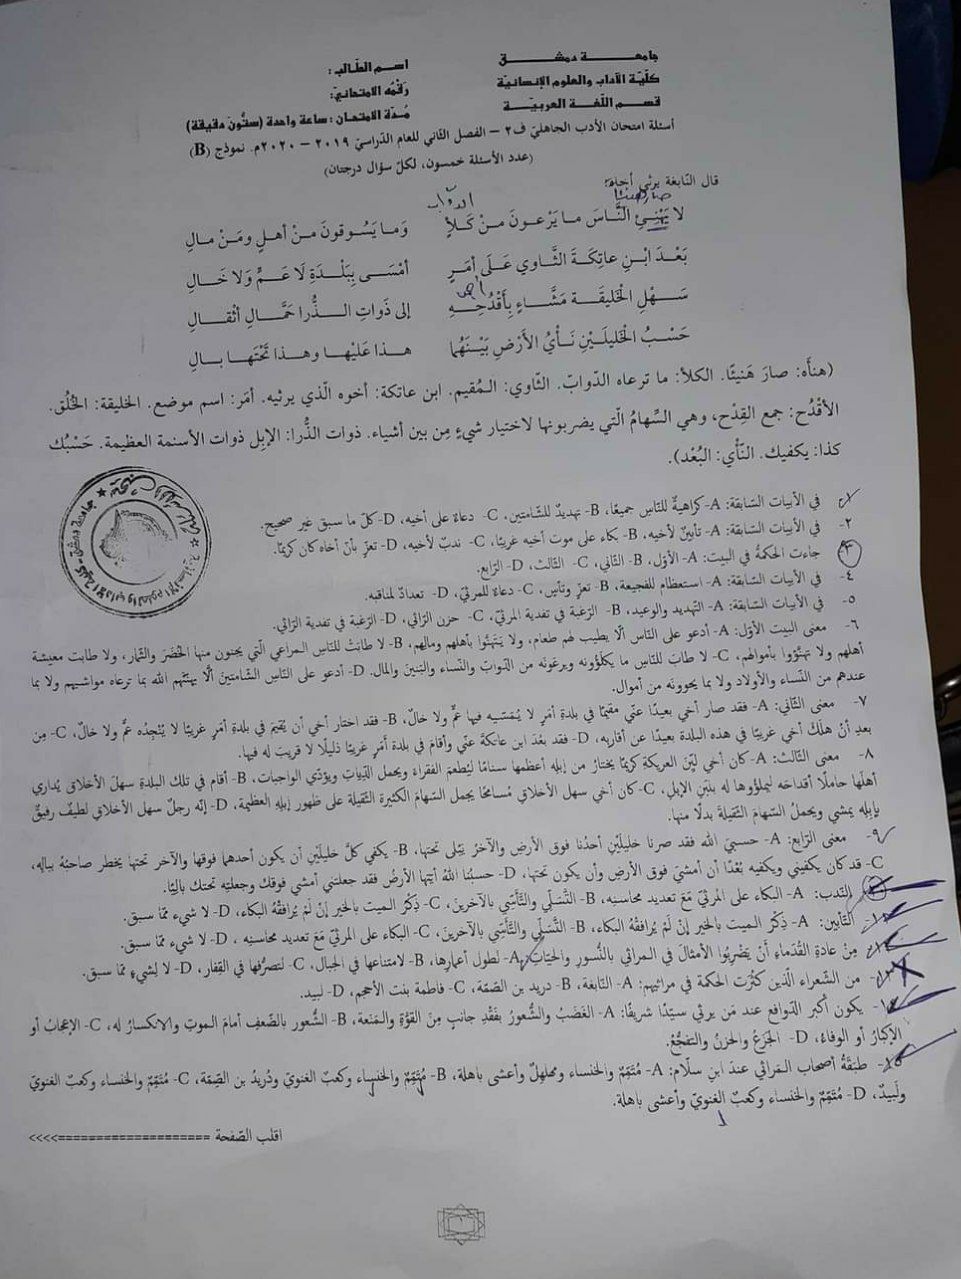 جامعـــــة دمشـــــق
كلّيّة الآداب والعلوم الإنسانيّة
قسم اللّغة العربيّة
اسم الطّالب:
رَقْمُه الامتحانيّ:
مُدّة الامتحان: ساعة واحدة (ستّون دقيقة)
أسئلة امتحان الأدب الجاهليّ ف٢ – الفصل الثّاني للعام الدّراسيّ ٢٠١٩ – ٢٠٢٠م. نموذج (B)
(عدد الأسئلة خمسون، لكلّ سؤال درجتان)
قال النّابغة يرثي أخاه:
صار هنيئا
لا يَهْنِئِ النَّاسَ ما يَرْعونَ مِنْ كَلَأٍ وَما يَسُوقونَ مِنْ أهلٍ ومَنْ مالِ
بَعْدَ ابْنِ عاتِكَةَ الثَّاوي عَلَى أمَرٍ أمْسَى بِبَلْدَةِ لَا عَمٍّ وَلا خَالِ
سَهْلِ الْخَليقَةِ مَشَّاءٍ بِأَقْدُحِهِ إلى ذَواتِ الذُّرا حَمَّالِ أثْقالِ
حَسْبُ الْخليلَيْنِ نَأْيُ الأَرْضِ بَيْنَهُما هذا عَلَيْها وهذا تَحْتَها بالِ
(هنأَه: صارَ هَنيئًا. الكلأ: ما ترعاه الدّوابّ. الثّاوي: الـمُقيم. ابن عاتكة: أخوه الّذي يرثيه. أمَر: اسم موضع. الخليقة: الخُلُق.
الأقْدُح: جمع القِدْح، وهي السِّهامُ الّتي يضربونها لاختيار شيءٍ مِن بين أشياء. ذوات الذُّرا: الإبِل ذوات الأسنمة العظيمة. حَسْبُك
كذا: يكفيك. النّأْي: البُعْد).
١- في الأبيات السّابقة: A- كراهيةٌ للنّاس جميعًا، B- تهديدٌ للشّامتين، C- دعاءٌ على أخيه، D- كلّ ما سبق غير صحيح.
٢- في الأبيات السّابقة: A- تأبينٌ لأخيه، B- بكاء على موت أخيه غريبًا، C- ندبٌ لأخيه، D- تعزٍّ بأنّ أخاه كان كريمًا.
٣- جاءت الحكمةُ في البيت: A- الأوّل، B- الثّاني، C- الثّالث، D- الرّابع.
٤- في الأبيات السّابقة: A- استعظام للفجيعة، B- تعزٍّ وتأسٍّ، C- دعاءٌ للمرثيّ، D- تعدادٌ لمناقبه.
٥- في الأبيات السّابقة: A- التّهديد والوعيد، B- الرّغبة في تفدية المرثيّ، C- حزن الرّائي، D- الرّغبة في تفدية الرّائي.
٦- معنى البيت الأوّل: A- أدعو على النّاس ألّا يطيب لهم طعام، ولا يَتَهَنَّوا بأهلهم ومالهم، B- لا طابَتْ للنّاسِ الـمراعي الّتي يجنون منها الخُضَرَ والثّمار، ولا طابت معيشة
أهلهم ولا تهنّؤوا بأموالهم، C- لا طابَ للنّاس ما يكلَؤونه ويرعَونه من الدّوابّ والنّساء والبنينَ والمال. D- أدعو على النّاسِ الشّامتينَ ألّا يهنّئهم الله بما ترعاه مواشيهم ولا بما
عندهم من النّساء والأولاد ولا بما يحوونَه من أموال.
٧- معنى الثّاني: A- فقد صار أخي بعيدًا عنّي مقيمًا في بلدةِ أمَرٍ لا يُمَسّيه فيها عمٌّ ولا خالٌ، B- فقد اختار أخي أن يُقيمَ في بلدةِ أمَرٍ غريبًا لا يُنْجِدُه عمٌّ ولا خالٌ، C- مِن
بعدِ أنْ هلَكَ أخي غريبًا في هذه البلدة بعيدًا عن أقاربه، D- فقد بَعُدَ ابن عاتكةَ عنّي وأقامَ في بلدة أَمَرٍ غريبًا ذليلًا لا قريبَ له فيها.
٨- معنى الثّالث: A- كان أخي ليِّنَ العريكةِ كريمًا يختارُ من إبلِه أعظمَها سنامًا ليُطعمَ الفقراءَ ويحملَ الدِّياتِ ويؤدّي الواجبات، B- أقامَ في تلك البلدةِ سهلَ الأخلاقِ يُداري
أهلَها حاملًا أقداحَه ليملؤوها له بلبَنِ الإبلِ، C- كان أخي سهل الأخلاقِ مُسامحًا يحملُ السّهامَ الكثيرة الثّقيلة على ظهورِ إبلِهِ العظيمة، D- إنّه رجلٌ سهل الأخلاقِ لطيفٌ رفيقٌ
بإبلِه يمشي ويحملُ السّهامَ الثّقيلةَ بدلًا منها.
٩- معنى الرّابع: A- حسبيَ الله فقد صرنا خليلَيْنِ أحدُنا فوق الأرضِ والآخرُ يَبْلى تحتها، B- يكفي كلَّ خليلَيْنِ أن يكون أحدهما فوقها والآخر تحتها يخطر صاحبُه ببالِه،
C- قد كان يكفيني ويكفيه بُعْدًا أن أمشيَ فوق الأرضِ وأن يكون تحتها، D- حسبُنا اللهُ أيّتها الأرضُ فقد جعلتني أمشي فوقك وجعلتِه تحتك باليًا.
النّدب: A- البكاء على المرثيّ مَعَ تعديد محاسنِه، B- التّسلّي والتّأسّي بالآخرينَ، C- ذِكْرُ الـميت بالخير إنْ لَمْ يُرافقْهُ البكاء، D- لا شيء ممّا سبق.
١١- التّأبين: A- ذِكْرُ الـميت بالخيرِ إنْ لَمْ يُرافقْهُ البكاء، B- التّسلّي والتّأسّي بالآخرينَ، C- البكاء على المرثيّ مَعَ تعديد محاسنِه، D- لا شيء ممّا سبق.
١٢- مِنْ عادةِ القُدَماءِ أنْ يَضْرِبُوا الأمثالَ في الـمراثي بالنُّسورِ والحيّات: A- لطولِ أعمارِها، B- لامتناعها في الجبال، C- لتصرُّفها في القِفار، D- لا لِشيءٍ ممّا سبق.
١٣- من الشّعراء الّذين كثُرَت الحكمة في مراثيهم: A- النّابغة، B- دريد بن الصّمّة، C- فاطمة بنت الأحجم، D- لبيد.
١٤- يكون أكبر الدّوافع عند مَن يرثي سيّدًا شريفًا: A- الغضَبُ والشّعورُ بفَقْدِ جانبٍ مِنَ القوّةِ والمَنَعة، B- الشّعور بالضّعفِ أمامَ الموتِ والانكسارُ له، C- الإعجابُ أو
الإكبارُ أو الوفاءُ، D- الجَزَعُ والحزنُ والتفجُّعُ.
١٥- طبقةُ أصحابِ الـمَراثي عندَ ابنِ سلّام: A- مُتمّمٌ والخنساء ومهلهلٌ وأعشى باهلة، B- مُتَمّمٌ والخنساء وكعبٌ الغنويّ ودُريدُ بن الصّمّة، C- مُتَمّمٌ والخنساء وكعبٌ الغنويّ
ولَبيدٌ، D- مُتَمّمٌ والخنساء وكعبٌ الغنويّ وأعشى باهلة.
اقلب الصّفحة ====================<<<<